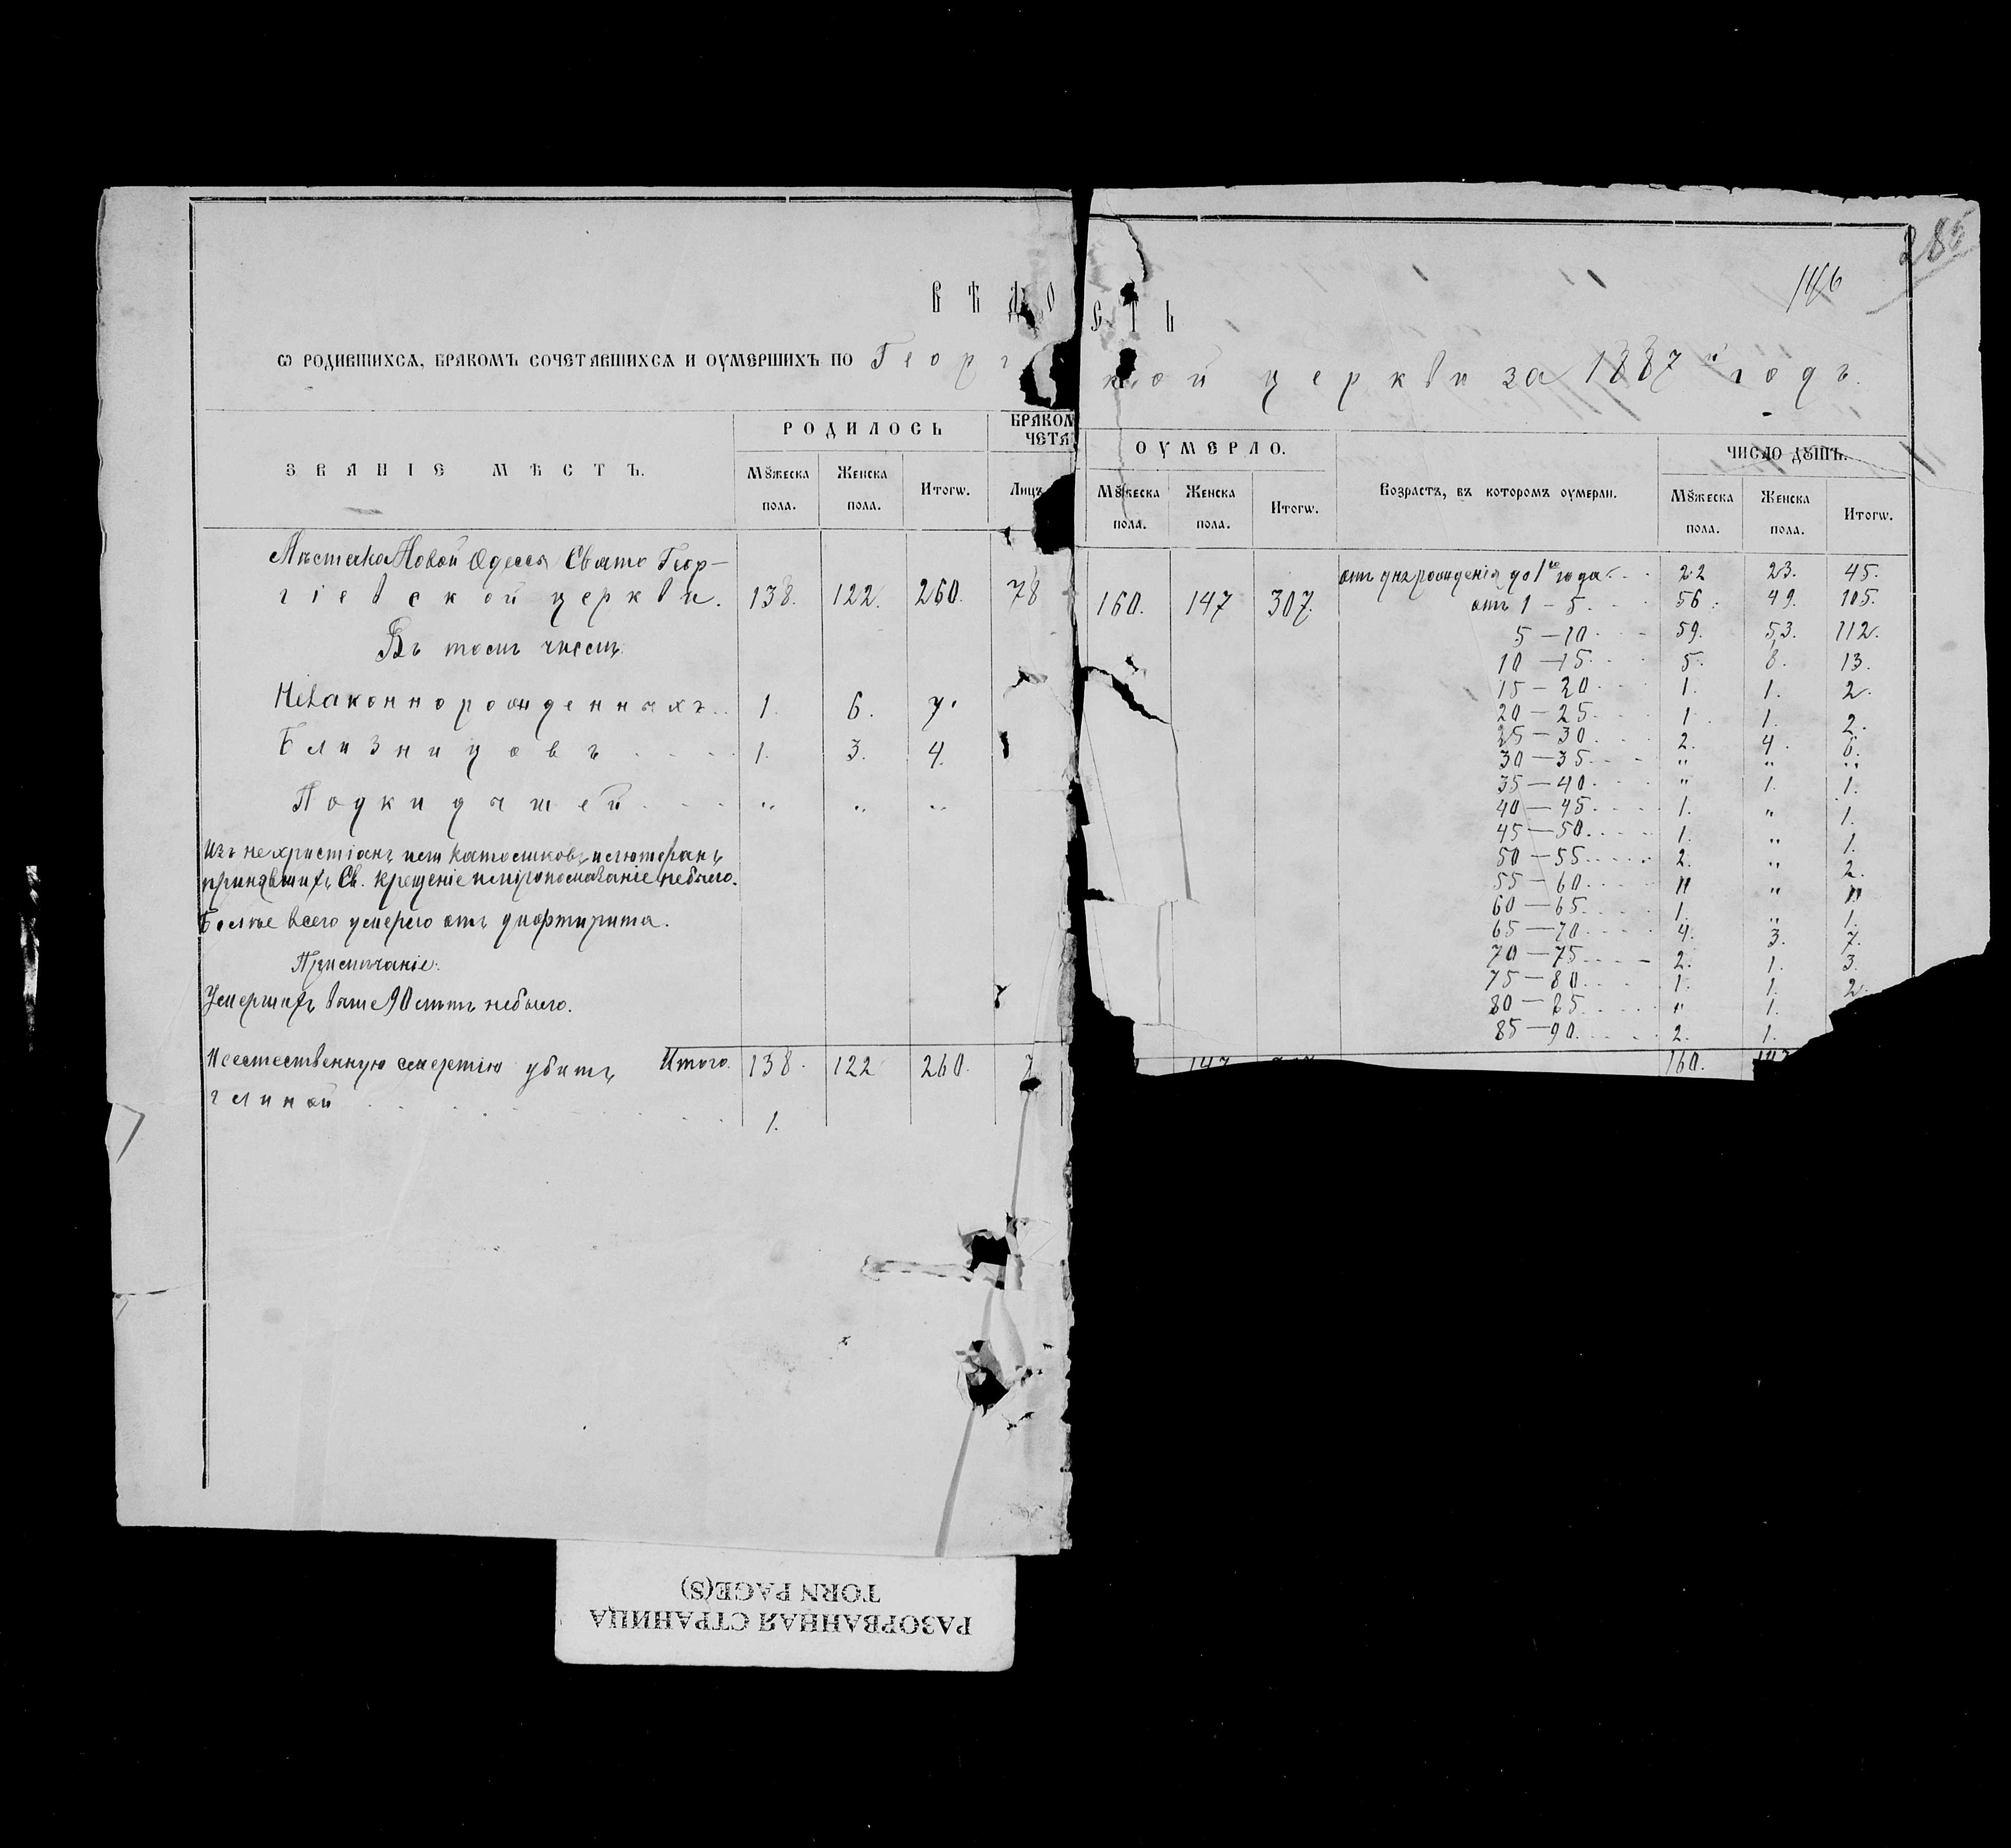 285
146
ВѢДО СТЬ
Ѡ РОДИВШИХСѦ, БРАКОМЪ СОЧЕТАВШИХСѦ И ОУМЕРШИХЪ ПО Георг кой церкви за 1887й годъ.
ЗВАНІЕ МѢСТЪ. РОДИЛОСЬ БРАКОМ ЧЕТА ОУМЕРЛО. Возрастъ, въ которомъ оумерли. ЧИСЛО ДꙊШЪ.
МꙊжеска пола. Женска пола. Итогѡ. Лицъ МꙊжеска пола. Женска пола. Итогѡ. МꙊжеска пола. Женска пола. Итогѡ.
Мѣстечка Новой Одессы Свято Геор-
гіевской церкви. 138. 122. 260. 78 160. 147 307.
Въ томъ числѣ
Незаконнорожденныхъ.. 1. 6. 7.
Близнецовъ . . . . 1. 3. 4.
Подкидышей . . . „ „ „
Изъ нехристіанъ или католиковъ и лютеранъ
принявшихъ Св. Крещеніе и мѵропомазаніе небыло.
Болѣе всего умерло отъ дифтирита.
Примѣчаніе:
Умершихъ выше 90 лѣтъ небыло.
Итого. 138. 122 260. 7
Неестественную смертію убитъ
глиной . . . . . . 1.
отъ дня рожденія до 1го года . . . 22 23. 45.
отъ 1 – 5 . . . 56. 49. 105.
5 – 10 . . . 59. 53. 112.
10 – 15 . . . 5. 8. 13.
15 – 20 . . . 1. 1. 2.
20 – 25 . . . 1. 1. 2.
25 – 30 . . . 2. 4. 6.
30 – 35 . . . „ „ „
35 – 40 . . . „ 1. 1.
40 – 45 . . . 1. „ 1.
45 – 50 . . . 1. „ 1.
50 – 55 . . . 2. „ 2.
55 – 60 . . . „ „ „
60 – 65 . . . 1. „ 1.
65 – 70 . . . 4. 3. 7.
70 – 75 . . . 2. 1. 3.
75 – 80 . . . 1. 1. 2.
80 – 85 . . . „ 1.
85 – 90 . . . 2. 1.
147 160. 147
РАЗОРВАННАЯ СТРАНИЦА
TORN PAGE(S)